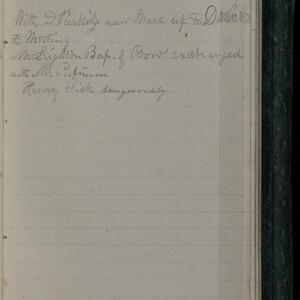 With D. Parker's new Mare up to Dunbarton
to Meeting
Mr. Leighton Bap. of Bow. exchanged
with Mr. Putnam
Henry Sick dangerously.